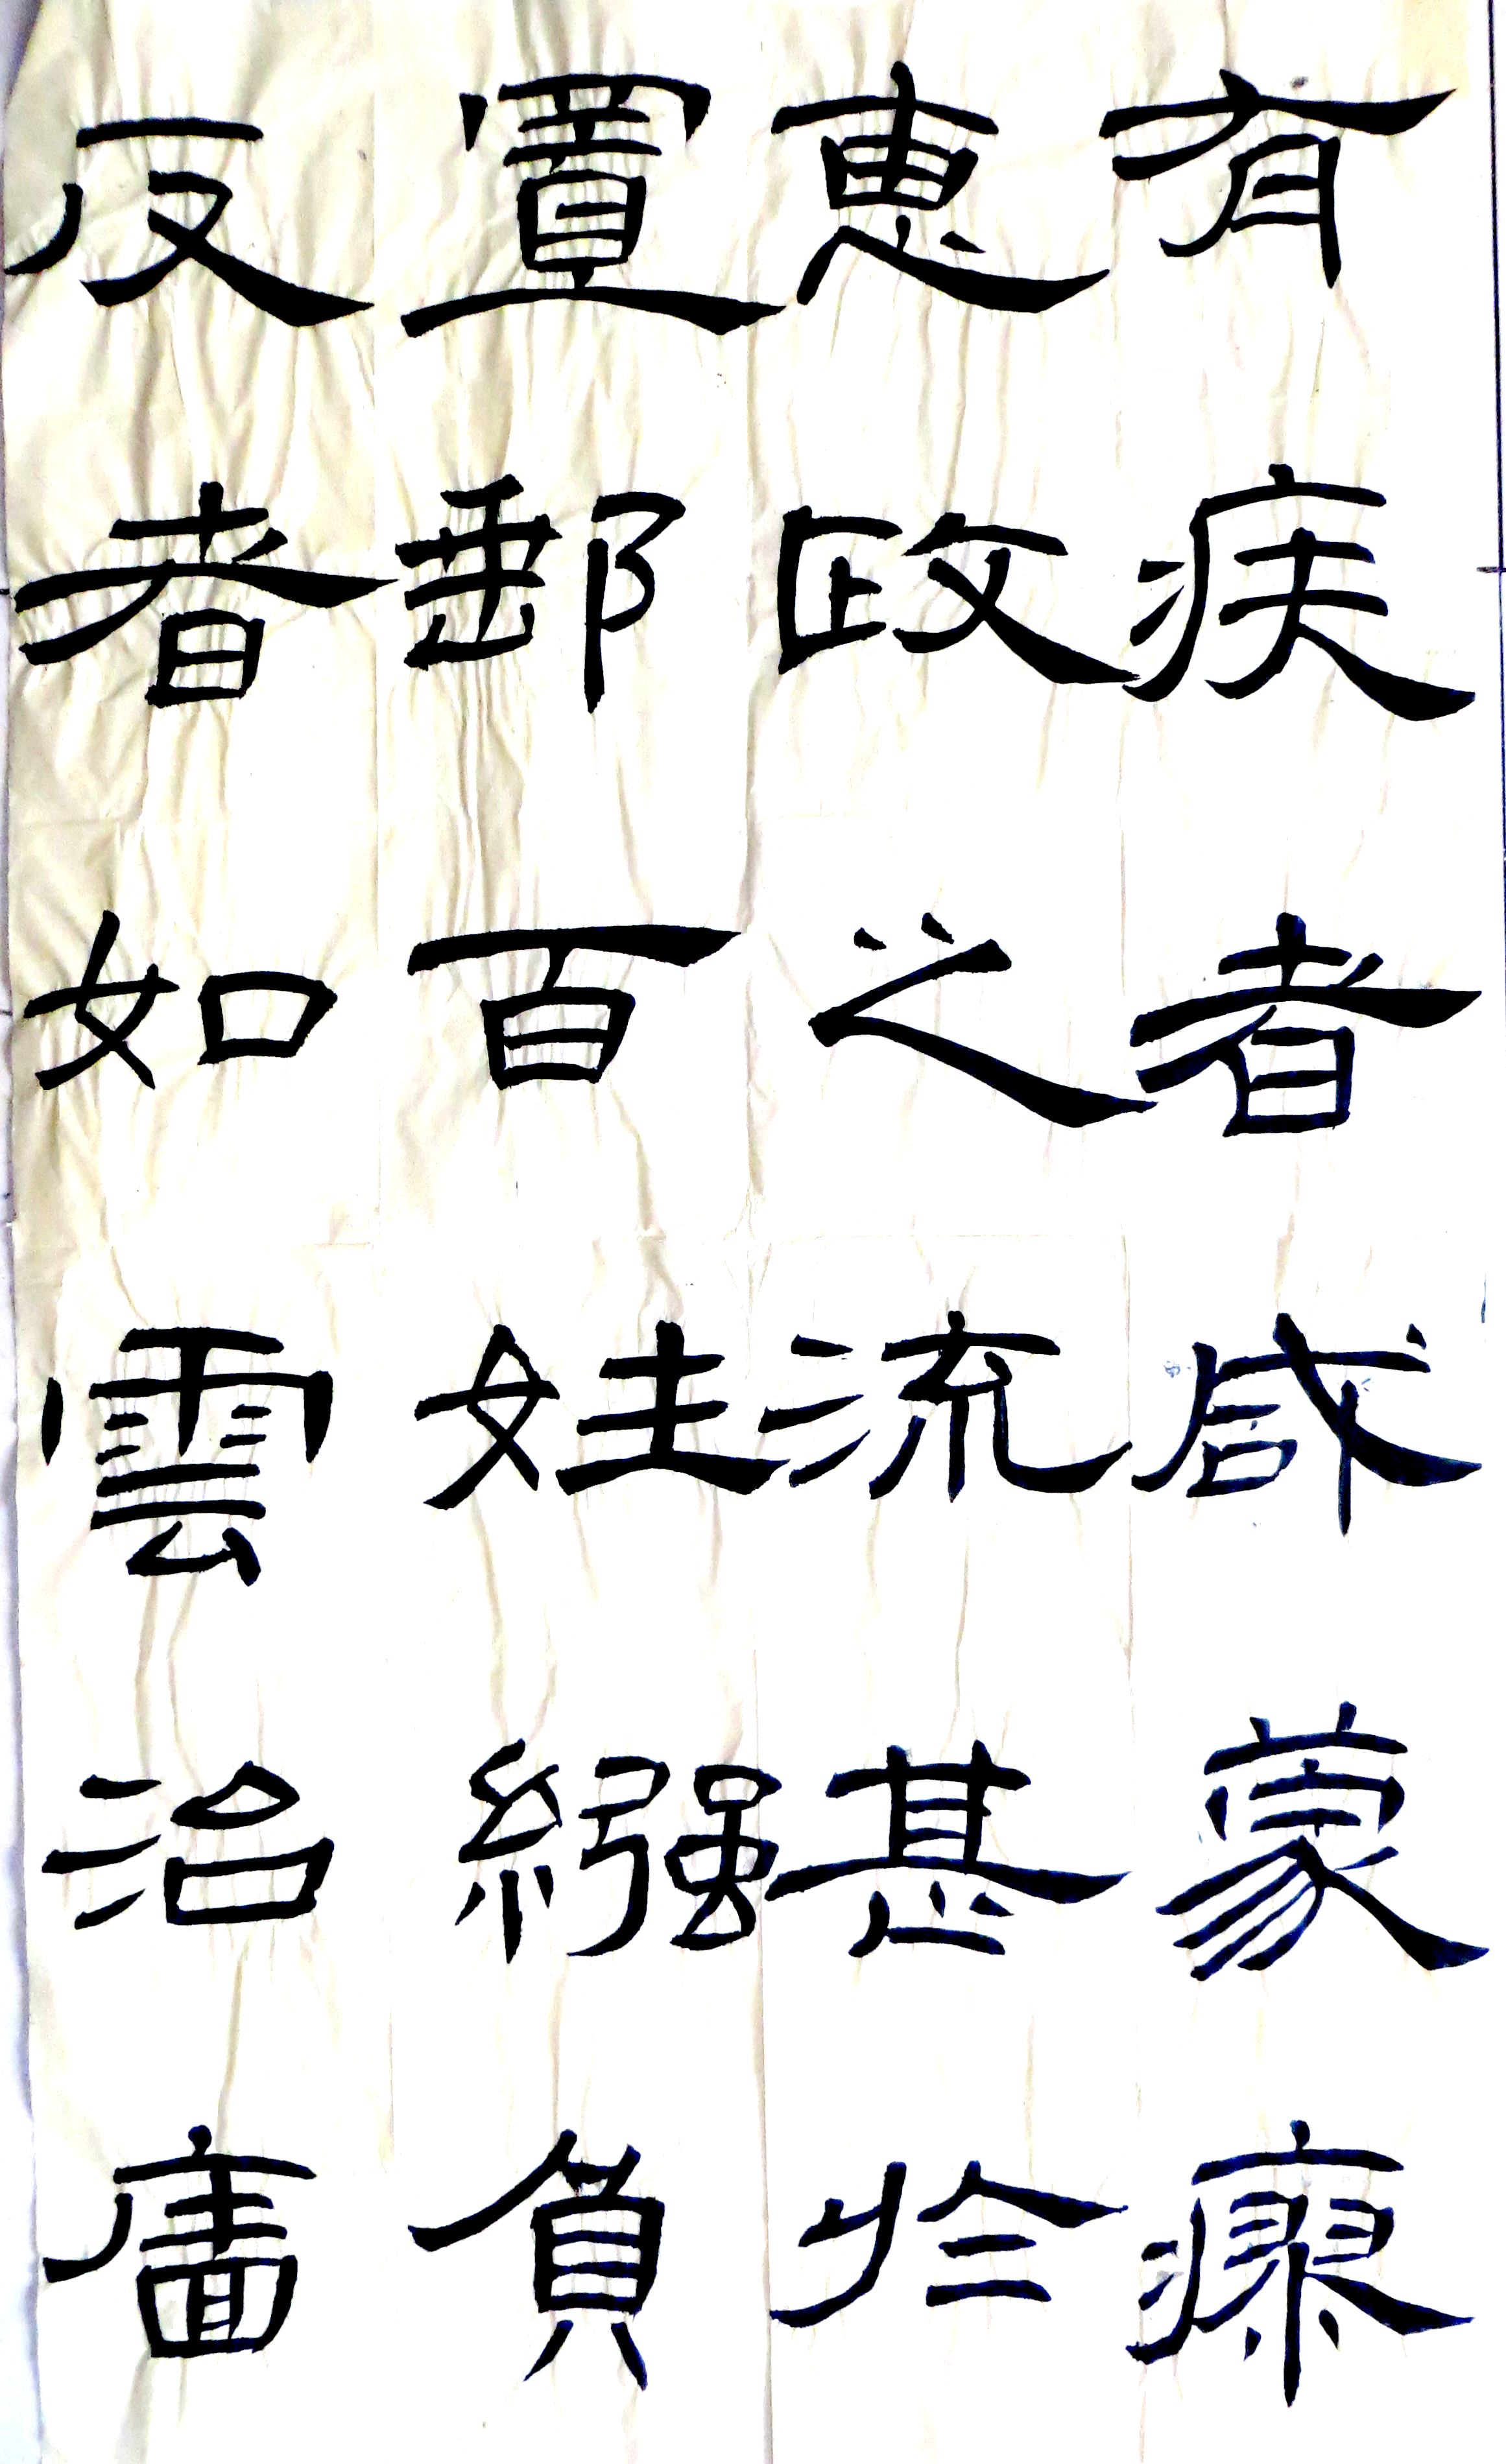 有疾者咸蒙瘳
恵政之流甚於
置郵百姓繈負
反者如雲治廧